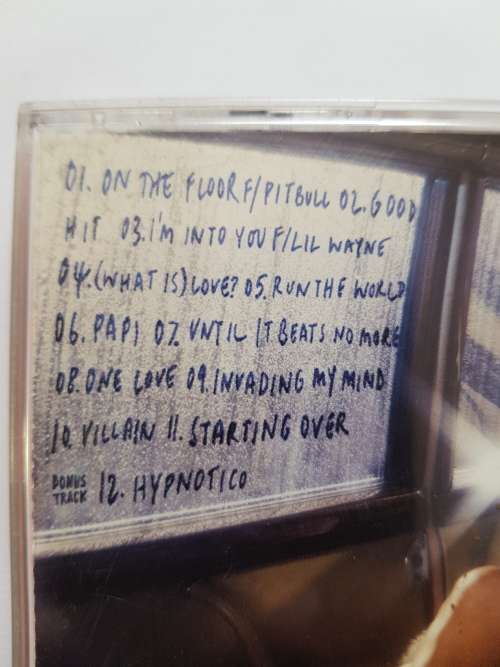 01. ON THE FLOOR F/PITBULL 02. GOOD
HIT 03. I'M INTO YOU F/LIL WAYNE
04. (WHAT IS) LOVE? 05. RUN THE WORLD
06. PAPI 07. UNTIL IT BEATS NO MORE
08. ONE LOVE 09. INVADING MY MIND
10. VILLAIN 11. STARTING OVER
BONUS TRACK 12. HYPNOTICO